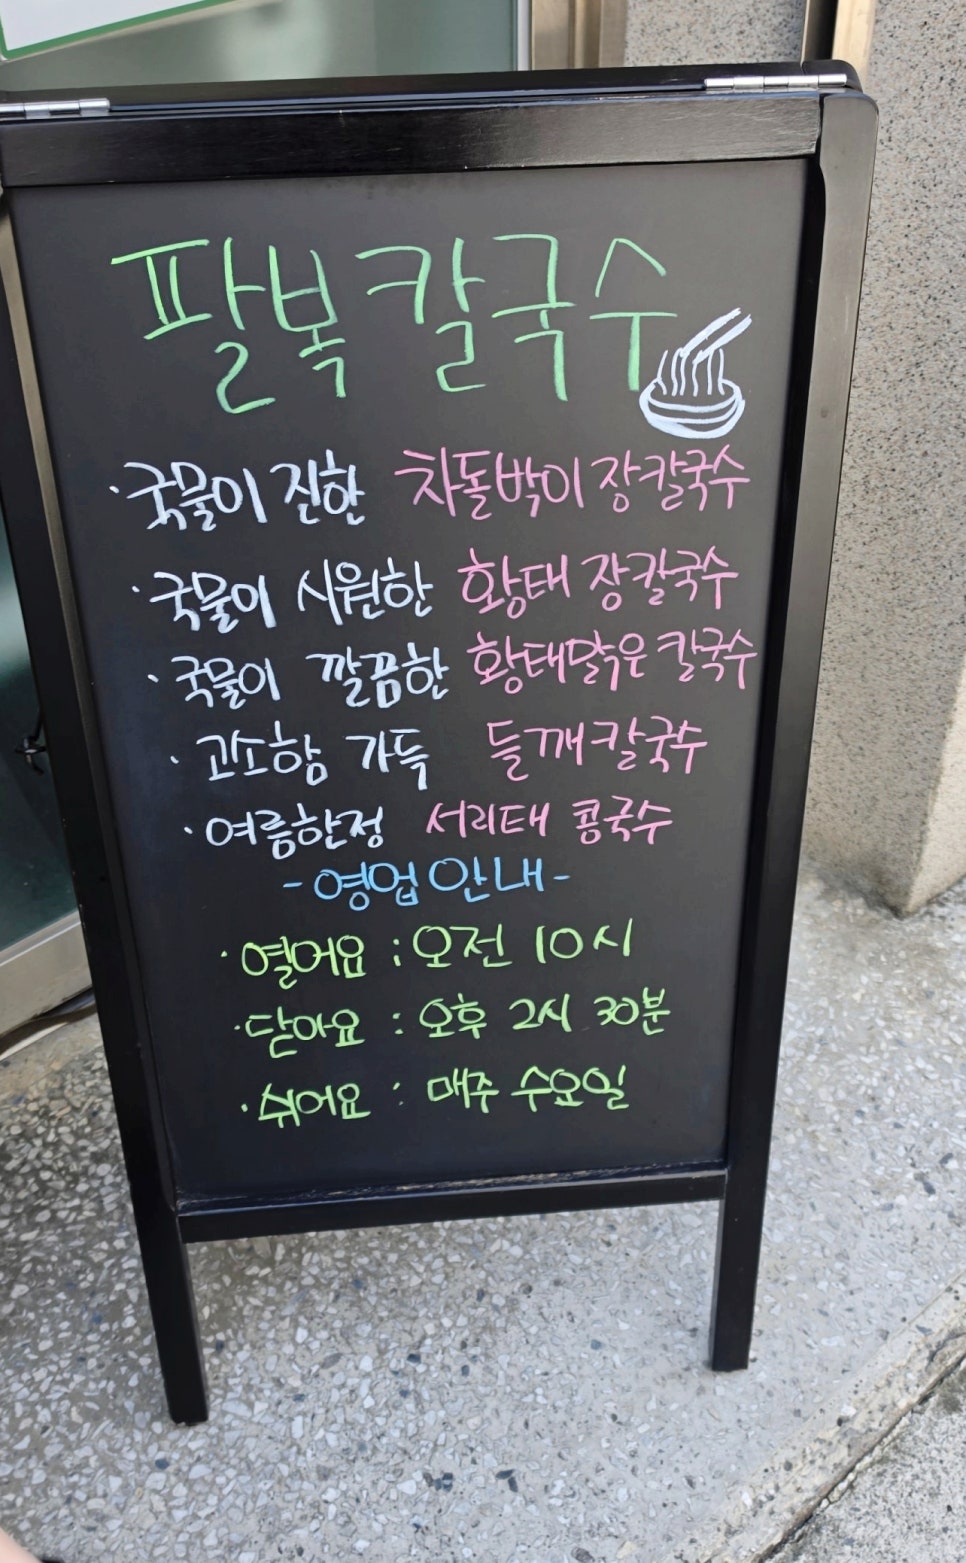 팔복칼국수
·국물이 진한 차돌박이 장칼국수
·국물이 시원한 황태 장칼국수
·국물이 깔끔한 황태맑은 칼국수
·고소함 가득 들깨칼국수
·여름한정 서리태 콩국수
-영업안내-
·열어요 : 오전 10시
·닫아요 : 오후 2시 30분
·쉬어요 : 매주 수요일